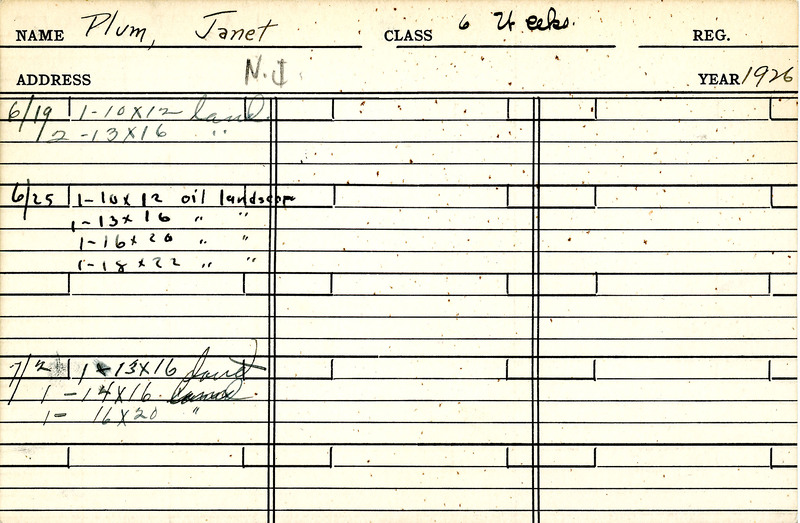 NAME Plum, Janet CLASS 6 Weeks. REG.
ADDRESS N.J YEAR 1926
6/19 1-10x12 land.
2-13x16 "
6/25 1-10x12 oil landscape
1-13x16 " "
1-16x20 " "
1-18x22 " "
7/2 1-13x16 land
1-14x16
1- 16x20 "